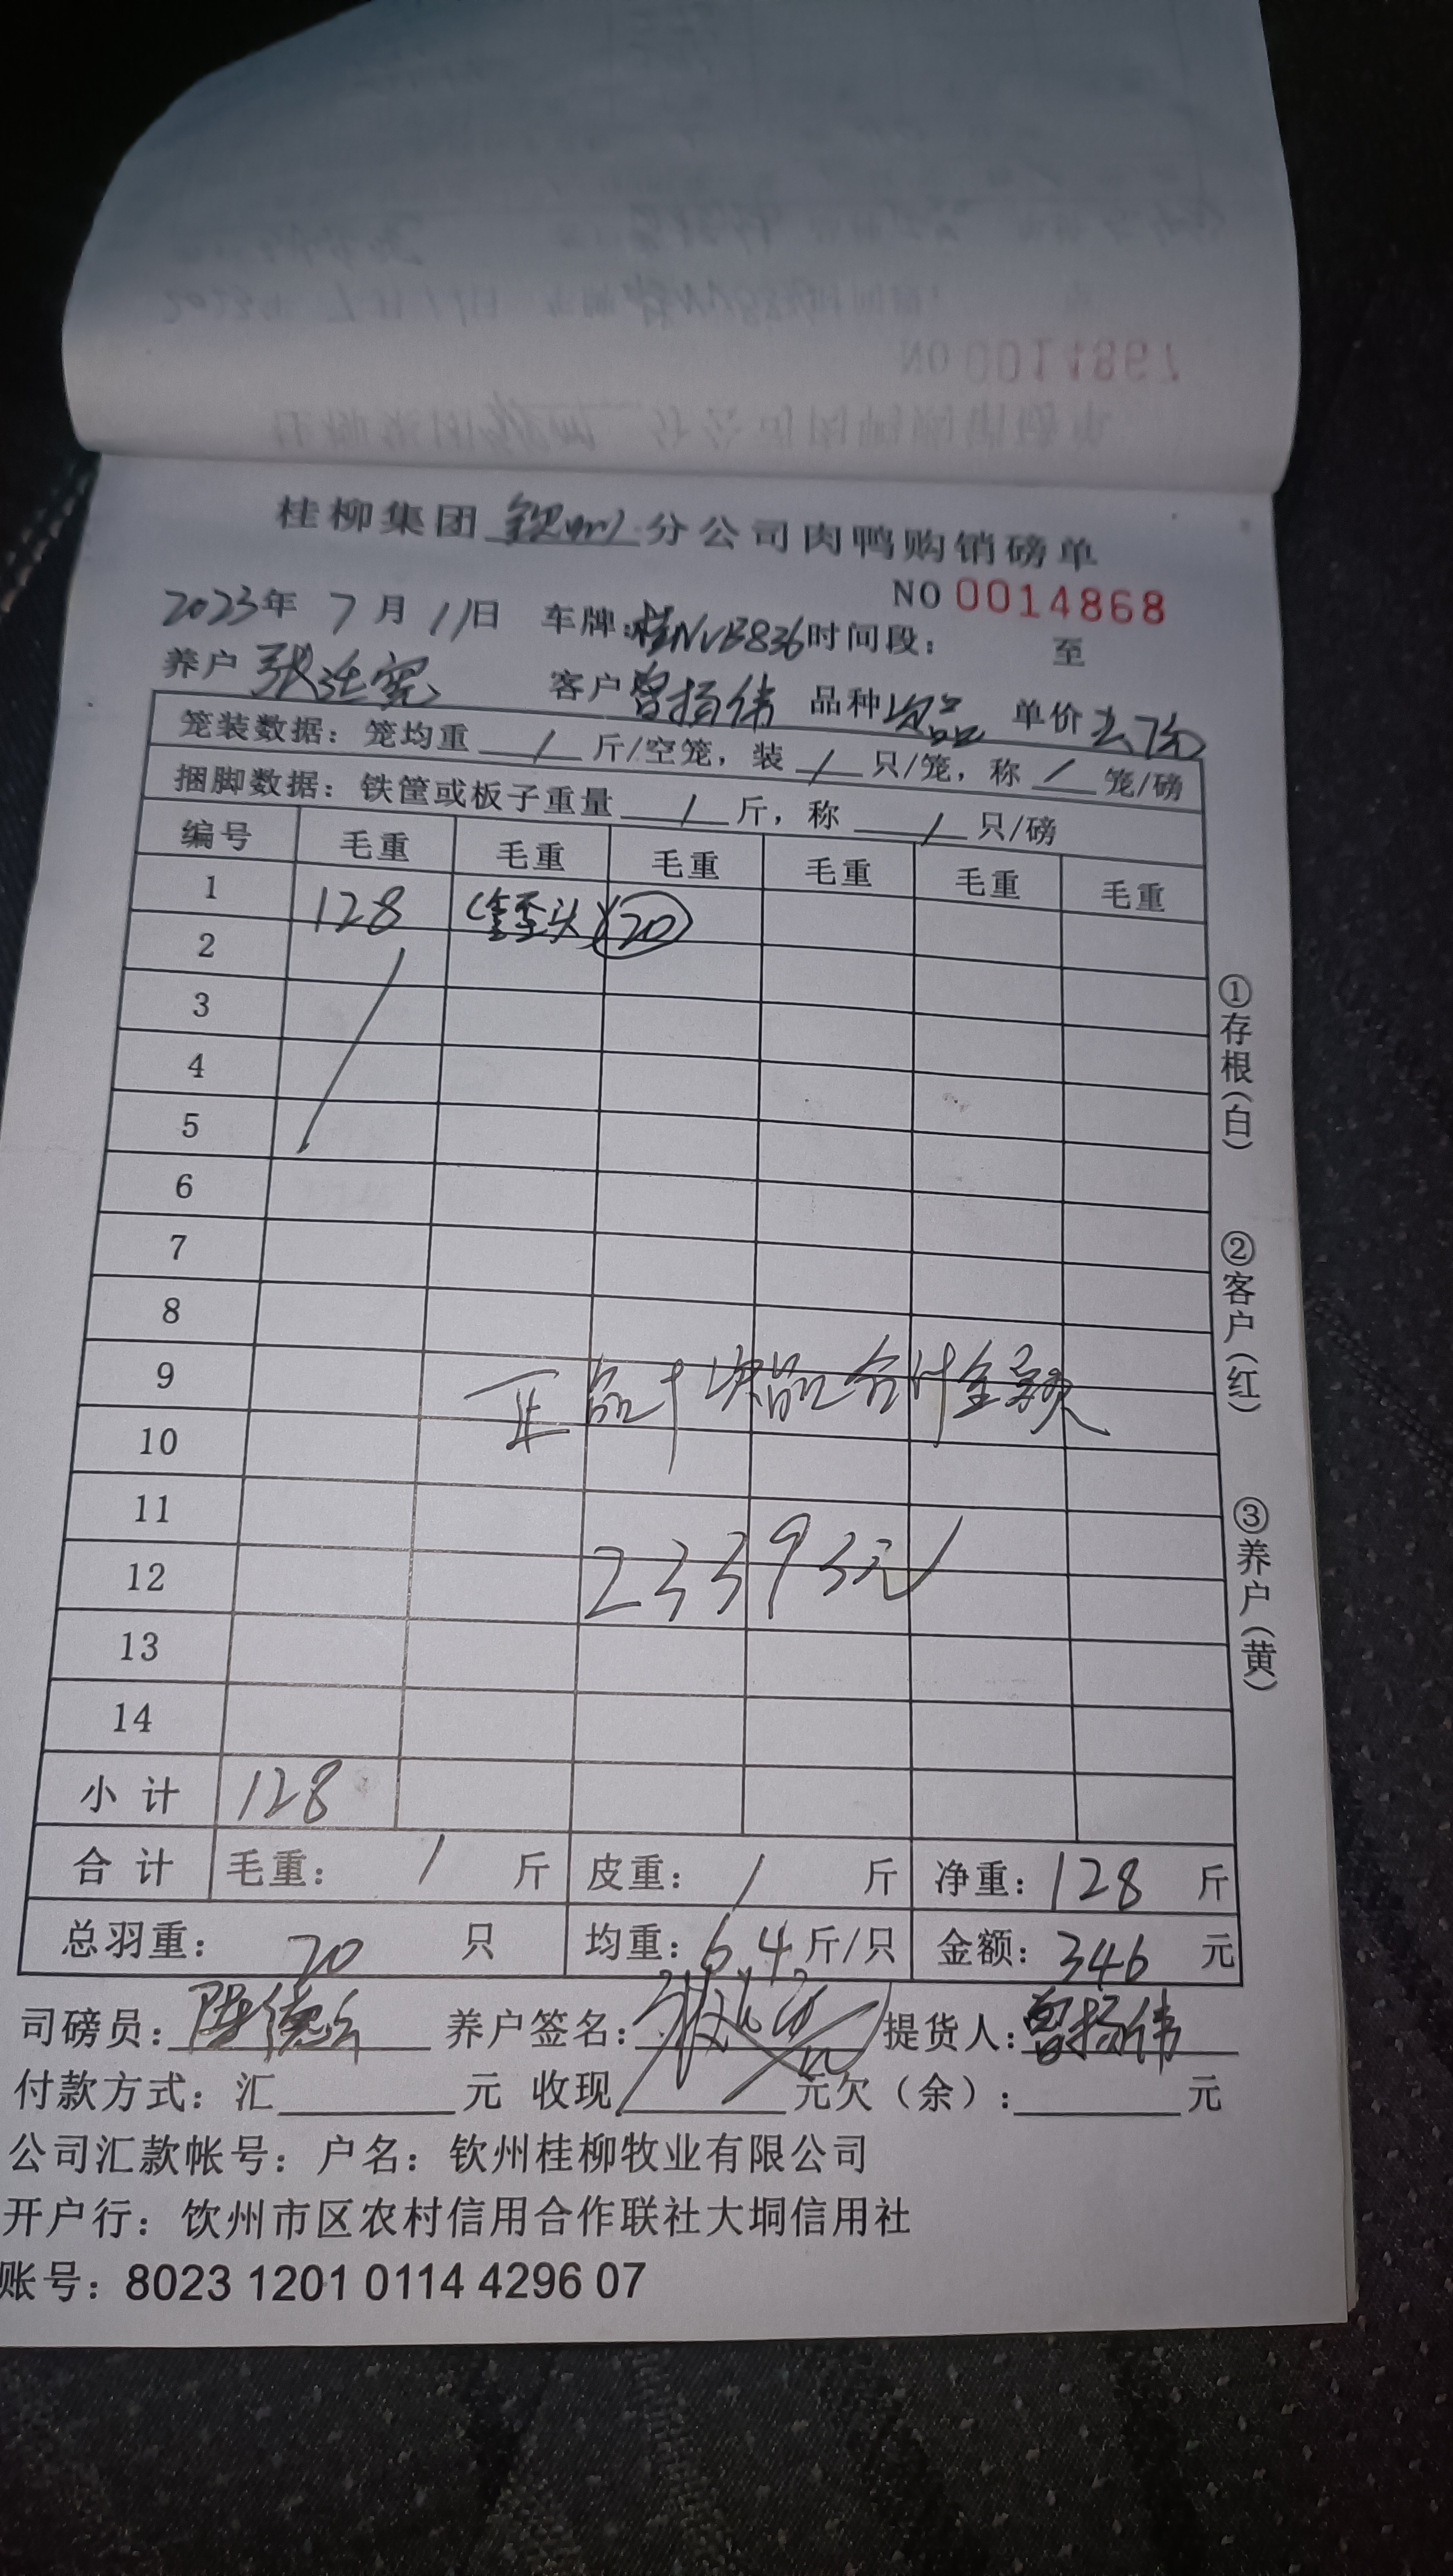 桂柳集团钦州分公司肉鸭购销磅单
NO 0014868
2023年 7 月 11日 车牌:桂NVB836时间段: 至
养户 客户曾扬伟 品种次品 单价2.70
笼装数据: 笼均重 / 斤/空笼, 装 / 只/笼, 称 / 笼/磅
捆脚数据: 铁筐或板子重量 / 斤, 称 / 只/磅
编号 毛重 毛重 毛重 毛重 毛重 毛重
1 128 (歪头)(20)
2
3
4
5
6
7
8
9
正品+次品合计金额
10
11
12
23393元
13
14
小计 128
合计 毛重: / 斤 皮重: / 斤 净重: 128 斤
总羽重: 20 只 均重: 6.4 斤/只 金额: 346 元
司磅员: 养户签名: 提货人: 曾扬伟
付款方式: 汇 元 收现 元欠(余): 元
公司汇款帐号: 户名: 钦州桂柳牧业有限公司
开户行: 饮州市区农村信用合作联社大垌信用社
账号: 8023 1201 0114 4296 07
①存根(白)
②客户(红)
③养户(黄)